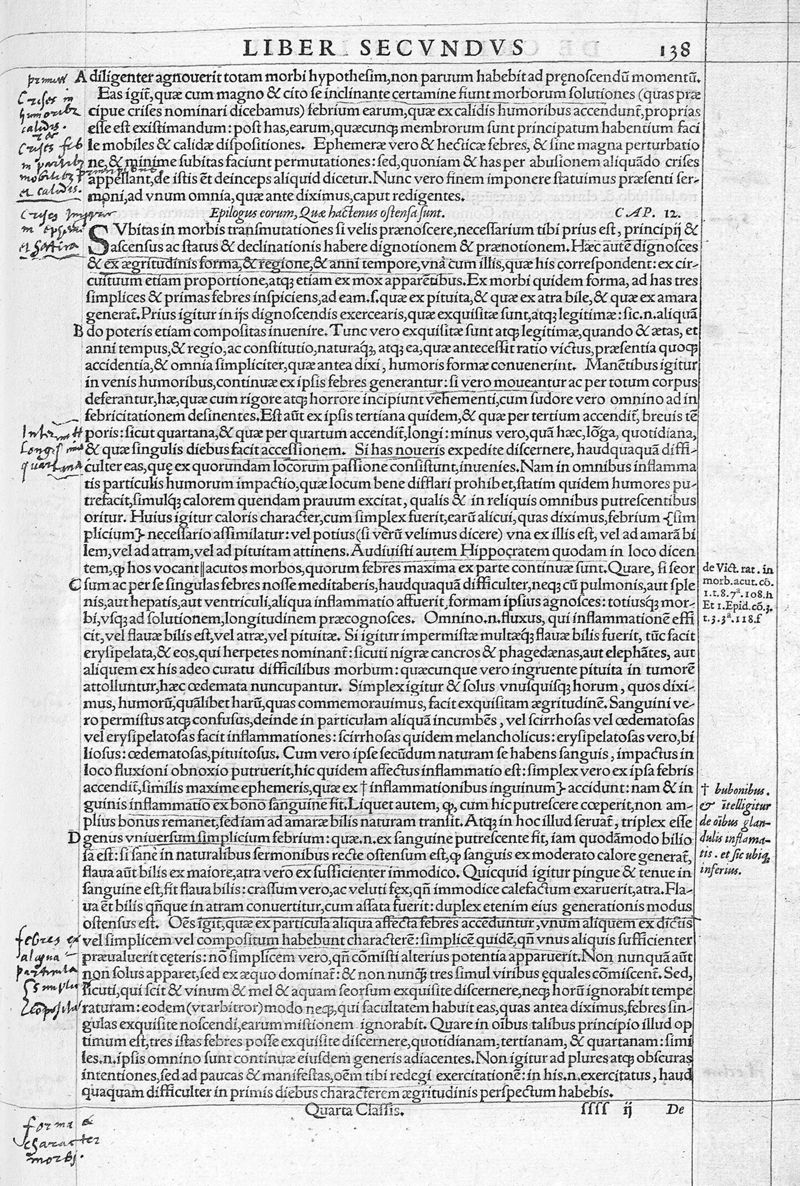 LIBER SECVNDVS 138
A diligenter agnouerit totam morbi hypothesim, non paruum habebit ad pręnoscendū momentū.
Eas igit̃, quæ cum magno & cito se inclinante certamine fiunt morborum solutiones (quas præ
cipue crises nominari dicebamus) febrium earum, quæ ex calidis humoribus accendunt̃, proprias
esse est existimandum: post has, earum, quæcunq; membrorum sunt principatum habentium faci
le mobiles & calidæ dispositiones. Ephemeræ vero & hecticæ febres, & sine magna perturbatio
ne, & minime subitas faciunt permutationes: sed, quoniam & has per abusionem aliquādo crises
appellant, de istis ēt deinceps aliquid dicetur. Nunc vero finem imponere statuimus præsenti ser-
moni, ad vnum omnia, quæ ante diximus, caput redigentes.
Epilogus eorum, Quæ hactenus ostensa sunt. CAP. 12.
SVbitas in morbis transmutationes si velis prænoscere, necessarium tibi prius est, principij &
ascensus ac status & declinationis habere dignotionem & prænotionem. Hæc autē dignosces
& ex ægritudinis forma, & regione, & anni tempore, vnà cum illis, quæ his correspondent: ex cir-
cuituum etiam proportione, atq; etiam ex mox apparētibus. Ex morbi quidem forma, ad has tres
simplices & primas febres inspiciens, ad eam .s. quæ ex pituita, & quæ ex atra bile, & quæ ex amara
generat̃. Prius igitur in ijs dignoscendis exercearis, quæ exquisitæ sunt, atq; legitimæ: sic .n. aliquā
B do poteris etiam compositas inuenire. Tunc vero exquisitæ sunt atq; legitimæ, quando & ætas, et
anni tempus, & regio, ac constitutio, naturaq;, atq; ea, quæ antecessit ratio victus, præsentia quoq;
accidentia, & omnia simpliciter, quæ antea dixi, humoris formæ conuenerint. Manētibus igitur
in venis humoribus, continuæ ex ipsis febres generantur: si vero moueantur ac per totum corpus
deferantur, hæ, quæ cum rigore atq; horrore incipiunt vehementi, cum sudore vero omnino ad in
febricitationem desinentes. Est aūt ex ipsis tertiana quidem, & quæ per tertium accendit̃, breuis tē
poris: sicut quartana, & quæ per quartum accendit̃, longi: minus vero, quā hæc, lōga, quotidiana,
& quæ singulis diebus facit accessionem. Si has noueris expedite discernere, haudquaquā diffi-
culter eas, quę ex quorundam locorum passione consistunt, inuenies. Nam in omnibus inflamma
tis particulis humorum impactio, quæ locum bene difflari prohibet, statim quidem humores pu-
trefacit, simulq; calorem quendam prauum excitat, qualis & in reliquis omnibus putrescentibus
oritur. Huius igitur caloris character, cum simplex fuerit, earū alicui, quas diximus, febrium {sim
plicium} necessario assimilatur: vel potius (si verū velimus dicere) vna ex illis est, vel ad amarā bi
lem, vel ad atram, vel ad pituitam attinens. Audiuisti autem Hippocratem quodam in loco dicen
tem, ꝙ hos vocant ‖ acutos morbos, quorum febres maxima ex parte continuæ sunt. Quare, si seor
C sum ac per se singulas febres nosse meditaberis, haudquaquā difficulter, neq; cū pulmonis, aut sple
nis, aut hepatis, aut ventriculi, aliqua inflammatio affuerit, formam ipsius agnosces: totiusq; mor-
bi, vsq; ad solutionem, longitudinem præcognosces. Omnino .n. fluxus, qui inflammationē effi
cit, vel flauæ bilis est, vel atræ, vel pituitæ. Si igitur impermistæ multæq; flauæ bilis fuerit, tūc facit
erysipelata, & eos, qui herpetes nominant̃: sicuti nigræ cancros & phagedænas, aut elephātes, aut
aliquem ex his adeo curatu difficilibus morbum: quæcunque vero ingruente pituita in tumorē
attolluntur, hæc œdemata nuncupantur. Simplex igitur & solus vnusquisq; horum, quos dixi-
mus, humorū, quālibet harū, quas commemorauimus, facit exquisitam ægritudinē. Sanguini ve-
ro permistus atq; confusus, deinde in particulam aliquā incumbēs, vel scirrhosas vel œdematosas
vel erysipelatosas facit inflammationes: scirrhosas quidem melancholicus: erysipelatosas vero, bi
liosus: œdematosas, pituitosus. Cum vero ipse secūdum naturam se habens sanguis, impactus in
loco fluxioni obnoxio putruerit, hic quidem affectus inflammatio est: simplex vero ex ipsa febris
accendit̃, similis maxime ephemeris, quæ ex † inflammationibus inguinum} accidunt: nam & in-
guinis inflammatio ex bono sanguine fit. Liquet autem, ꝙ, cum hic putrescere cœperit, non am-
plius bonus remanet, sed iam ad amaræ bilis naturam transit. Atq; in hoc illud seruat̃, triplex esse
D genus vniuersum simplicium febrium: quæ .n. ex sanguine putrescente fit, iam quodāmodo bilio
sa est: si sanè in naturalibus sermonibus recte ostensum est, ꝙ sanguis ex moderato calore generat̃,
flaua aūt bilis ex maiore, atra vero ex sufficienter immodico. Quicquid igitur pingue & tenue in
sanguine est, fit flaua bilis: crassum vero, ac veluti fęx, qñ immodice calefactum exaruerit, atra. Fla-
ua ēt bilis qñque in atram conuertitur, cum assata fuerit: duplex etenim eius generationis modus
ostensus est. Oēs igit̃, quæ ex particula aliqua affecta febres accēduntur, vnum aliquem ex dictis
vel simplicem vel compositum habebunt characterē: simplicē quidē, qñ vnus aliquis sufficienter
præualuerit cęteris: nō simplicem vero, qñ cōmisti alterius potentia apparuerit. Non nunquā aūt
non solus apparet, sed ex æquo dominat̃: & non nunq̃ tres simul viribus ęquales cōmiscent̃. Sed,
sicuti, qui scit & vinum & mel & aquam seorsum exquisite discernere, neq; horū ignorabit tempe
raturam: eodem (vt arbitror) modo neq;, qui facultatem habuit eas, quas antea diximus, febres sin-
gulas exquisite noscendi, earum mistionem ignorabit. Quare in oībus talibus principio illud op
timum est, tres istas febres posse exquisite discernere, quotidianam, tertianam, & quartanam: simi
les .n. ipsis omnino sunt continuæ eiusdem generis adiacentes. Non igitur ad plures atq; obscuras
intentiones, sed ad paucas & manifestas, oēm tibi redegi exercitationē: in his .n. exercitatus, haud
quaquam difficulter in primis diebus characterem ægritudinis perspectum habebis.
Quarta Classis. ſſſſ ij De
de Vict. rat. in
morb. acut. cō.
1. t. 8. 7ᵃ. 108. h
Et 1. Epid. cō. 3.
t. 3. 3ᵃ. 118. f
† bubonibus.
& ītelligitur
de oībus glan-
dulis inflama-
tis. et sic ubiq;
inferius.
Crises in
humoribꝰ
calidis.
Crises feb
et calidis.
quartana
febres ex
aliqua
particula
Simplex
Composita
forma &
character
morbi.